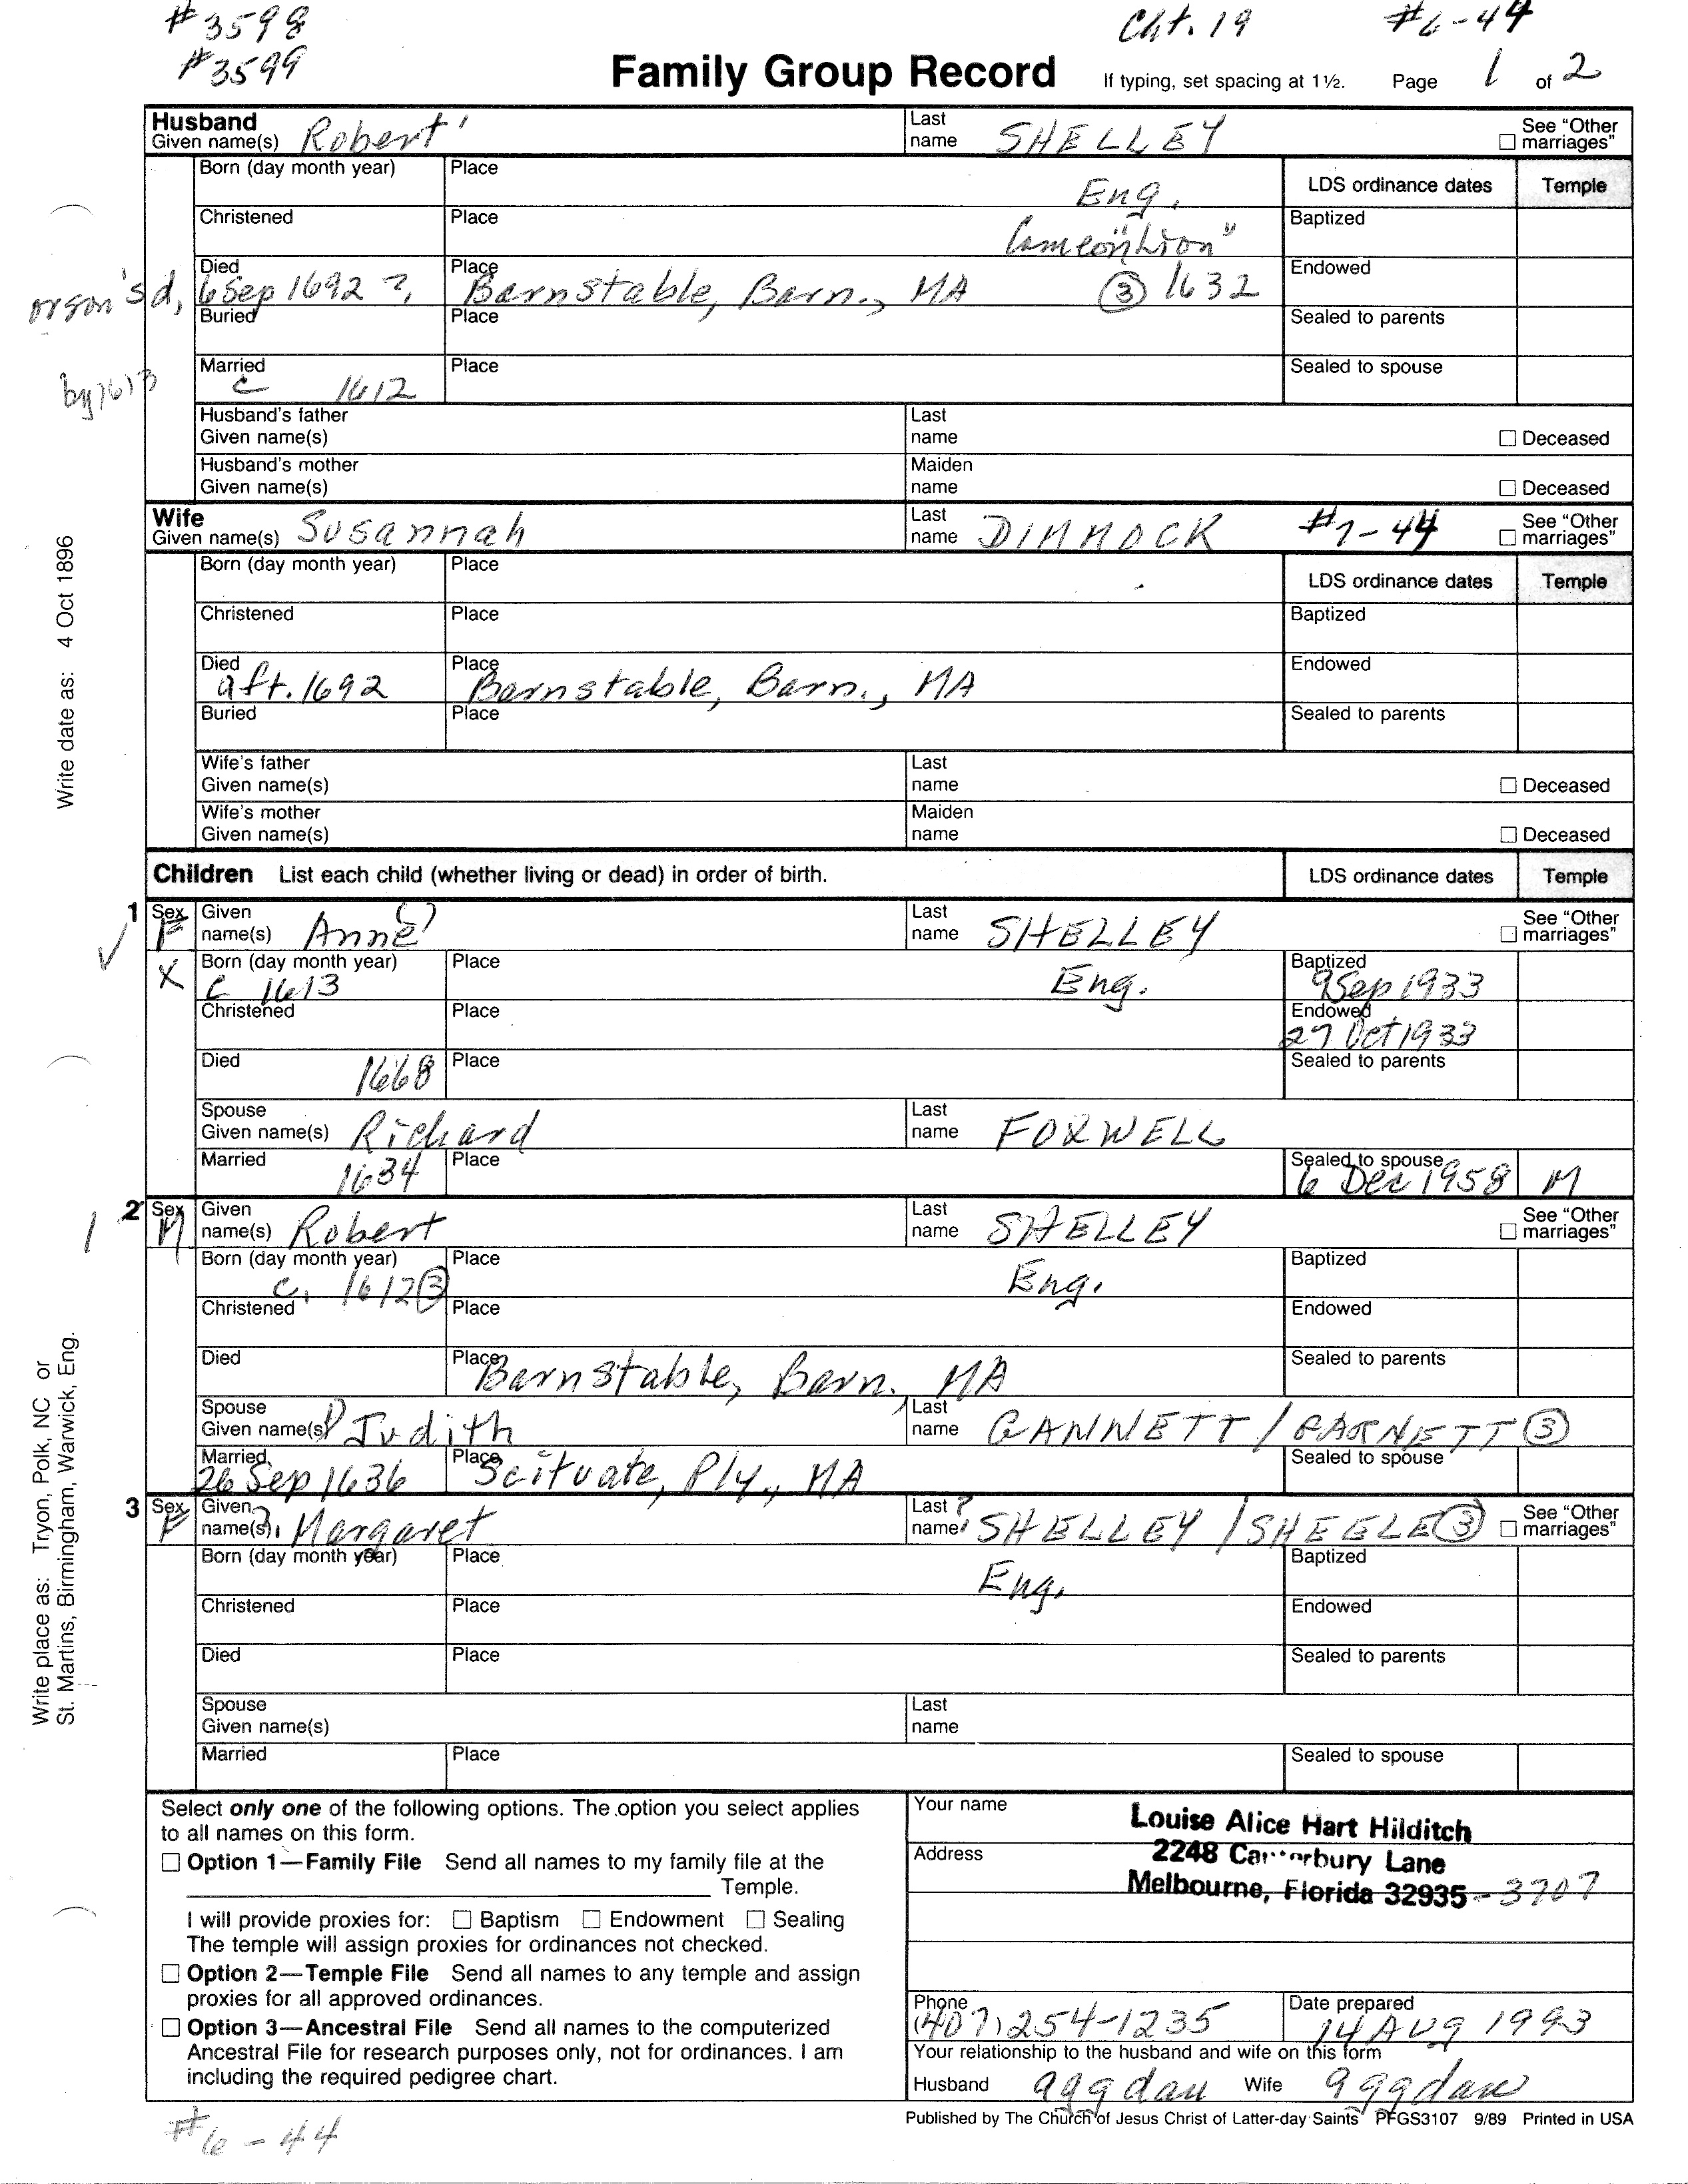 #3598 Cht. 19 #6-44
#3599
Family Group Record If typing, set spacing at 1½. Page 1 of 2
Husband
Given name(s) Robert' Last name SHELLEY See "Other marriages"
Born (day month year) Place Eng. LDS ordinance dates Temple
Christened Place Came on "Lion" Baptized
orson's d, Died 6 Sep 1692 ?, Place Barnstable, Barn., MA ③ 1632 Endowed
Buried Place Sealed to parents
by 1613 Married c 1612 Place Sealed to spouse
Husband's father
Given name(s) Last name Deceased
Husband's mother
Given name(s) Maiden name Deceased
Wife
Given name(s) Susannah Last name DIMMOCK #7-44 See "Other marriages"
Born (day month year) Place LDS ordinance dates Temple
Christened Place Baptized
Died aft. 1692 Place Barnstable, Barn., MA Endowed
Buried Place Sealed to parents
Wife's father
Given name(s) Last name Deceased
Wife's mother
Given name(s) Maiden name Deceased
Write date as: 4 Oct 1896
Children List each child (whether living or dead) in order of birth. LDS ordinance dates Temple
1 Sex F Given name(s) Anne (?) Last name SHELLEY See "Other marriages"
X Born (day month year) c 1613 Place Eng. Baptized 9 Sep 1933
Christened Place Endowed 27 Oct 1933
Died 1668 Place Sealed to parents
Spouse
Given name(s) Richard Last name FOXWELL
Married 1634 Place Sealed to spouse 6 Dec 1958 M
2 Sex M Given name(s) Robert Last name SHELLEY See "Other marriages"
Born (day month year) c. 1612 ③ Place Eng. Baptized
Christened Place Endowed
Died Place Barnstable, Barn. MA Sealed to parents
Spouse
Given name(s) 1) Judith Last name GANNETT / GARNETT ③
Married 26 Sep 1636 Place Scituate, Ply., MA Sealed to spouse
3 Sex F Given name(s) ?, Margaret Last name ? SHELLEY / SHEELE ③ See "Other marriages"
Born (day month year) Place Eng. Baptized
Christened Place Endowed
Died Place Sealed to parents
Spouse
Given name(s) Last name
Married Place Sealed to spouse
Write place as: Tryon, Polk, NC or
St. Martins, Birmingham, Warwick, Eng.
Select only one of the following options. The option you select applies
to all names on this form.
Option 1—Family File Send all names to my family file at the
Temple.
I will provide proxies for: Baptism Endowment Sealing
The temple will assign proxies for ordinances not checked.
Option 2—Temple File Send all names to any temple and assign
proxies for all approved ordinances.
Option 3—Ancestral File Send all names to the computerized
Ancestral File for research purposes only, not for ordinances. I am
including the required pedigree chart.
Your name Louise Alice Hart Hilditch
Address 2248 Canterbury Lane
Melbourne, Florida 32935-3707
Phone (407) 254-1235 Date prepared 14 AUG 1993
Your relationship to the husband and wife on this form
Husband gggdau Wife gggdau
Published by The Church of Jesus Christ of Latter-day Saints PFGS3107 9/89 Printed in USA
#6-44